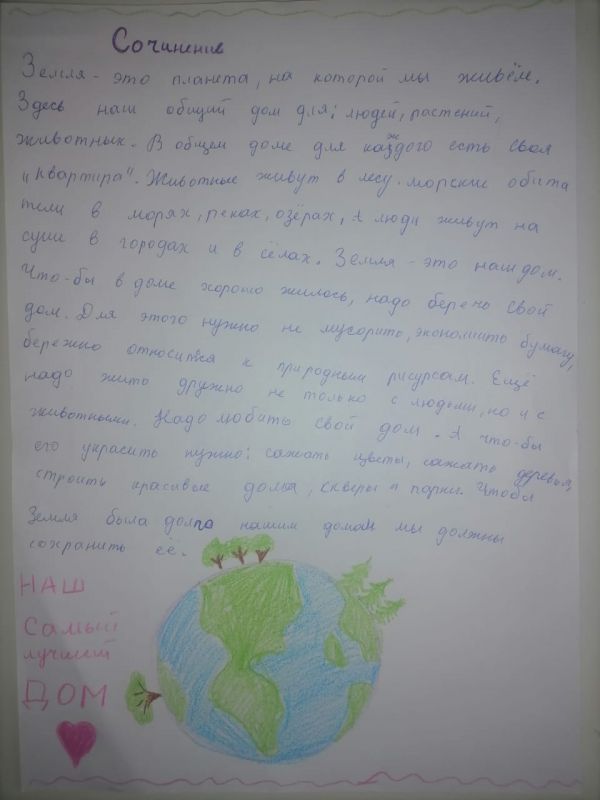 Сочинение
Земля - это планета, на которой мы живём.
Здесь наш общий дом для: людей, растений,
животных. В общем доме для каждого есть своя
„квартира". Животные живут в лесу. морские обита
тели в морях, реках, озёрах, А люди живут на
суше в городах и в сёлах. Земля - это наш дом.
Что-бы в доме хорошо жилось, надо беречь свой
дом. Для этого нужно не мусорить, экономить бумагу,
бережно относится к природным рисурсам. Ещё
надо жить дружно не только с людьми, но и с
животными. Надо любить свой дом. А что-бы
его украсить нужно: сажать цветы, сажать деревья,
строить красивые дома, скверы и парки. Чтобы
Земля была долго нашим домом мы должны
сохранить её.
НАШ
Самый
лучший
ДОМ